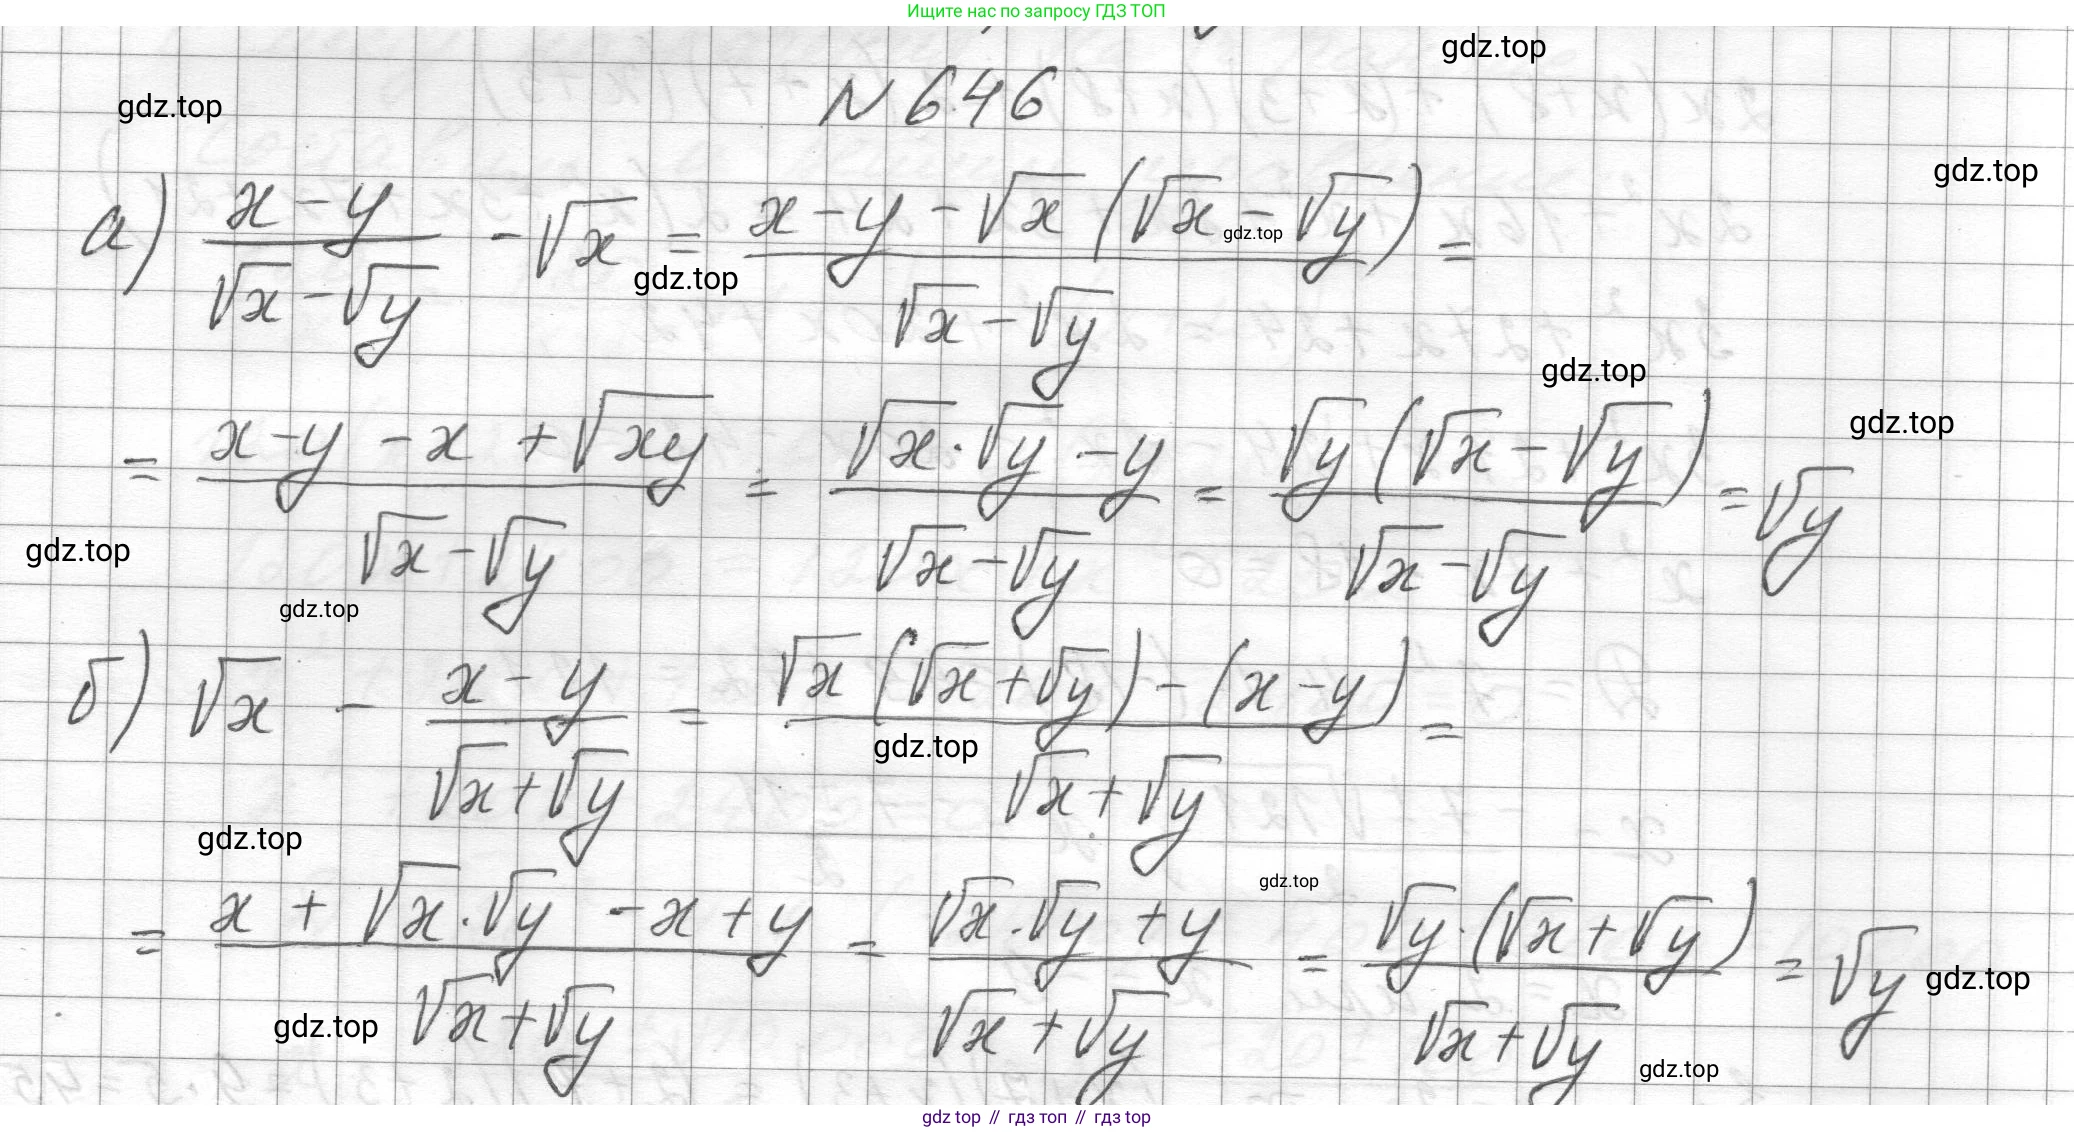 Ищите нас по запросу ГДЗ ТОП
gdz.top
№ 646
gdz.top
gdz.top
а) (x-y)/(√x-√y) - √x = (x-y-√x(√x-√y))/(√x-√y) =
gdz.top
gdz.top
gdz.top
gdz.top
= (x-y-x+√xy)/(√x-√y) = (√x·√y-y)/(√x-√y) = (√y(√x-√y))/(√x-√y) = √y
gdz.top
gdz.top
б) √x - (x-y)/(√x+√y) = (√x(√x+√y)-(x-y))/(√x+√y) =
gdz.top
gdz.top
gdz.top
= (x+√x·√y-x+y)/(√x+√y) = (√x·√y+y)/(√x+√y) = (√y·(√x+√y))/(√x+√y) = √y
gdz.top
gdz.top
gdz.top
gdz top // гдз топ // гдз top